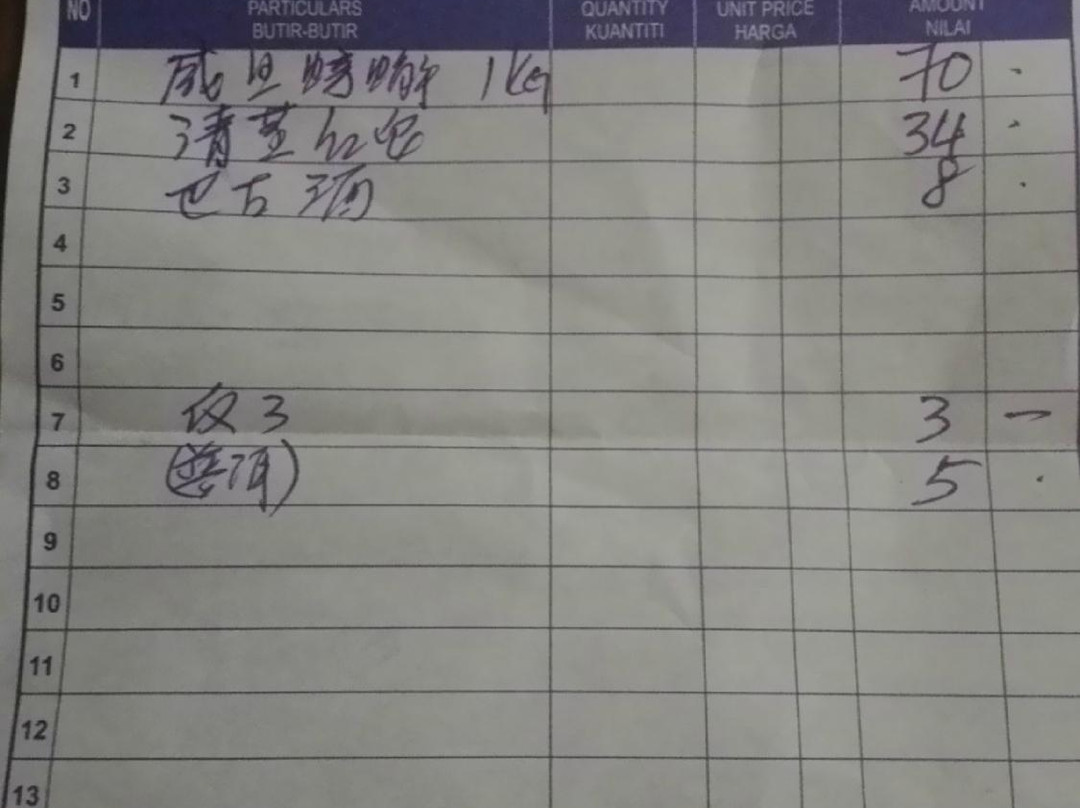 NO PARTICULARS QUANTITY UNIT PRICE AMOUNT
BUTIR-BUTIR KUANTITI HARGA NILAI
1 咸旦螃蟹 1Kg 70 .
2 清蒸红 34 .
3 巴古 8 .
4
5
6
7 饭3 3 —
8 5 .
9
10
11
12
13